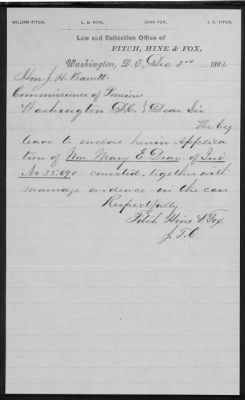 WILLIAM FITCH. L. S. HINE. JOHN FOX. J. E. FITCH.
Law and Collection Office of
FITCH, HINE & FOX.
Washington, D. C., Dec 3rd 1864
Hon J. H. Barrett
Commissioner of Pensions
Washington D.C. Dear Sir
We beg
leave to enclose herein Applica
tion of Mary E of Ind
No 35.690 corrected, together with
marriage evidence in the case
Respectfully
Fitch Hine & Fox